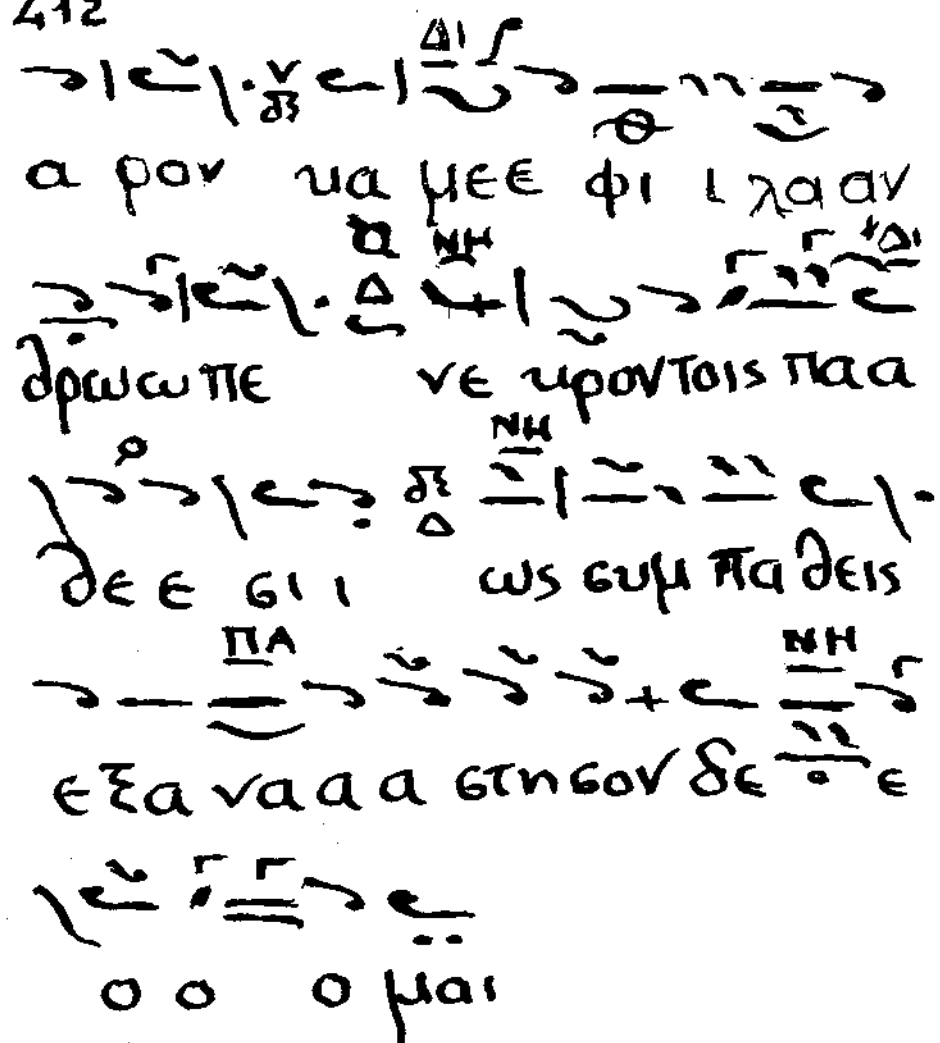 412
Δι
α ρον κα μεε φι ι λααν
Δ ΝΗ
θρωωπε νε κροντοις παα
ΝΗ
θε ε σι ι ως συμ πα θεις
ΠΑ ΝΗ
εξα νααα στησον δε ε
ο ο ο μαι